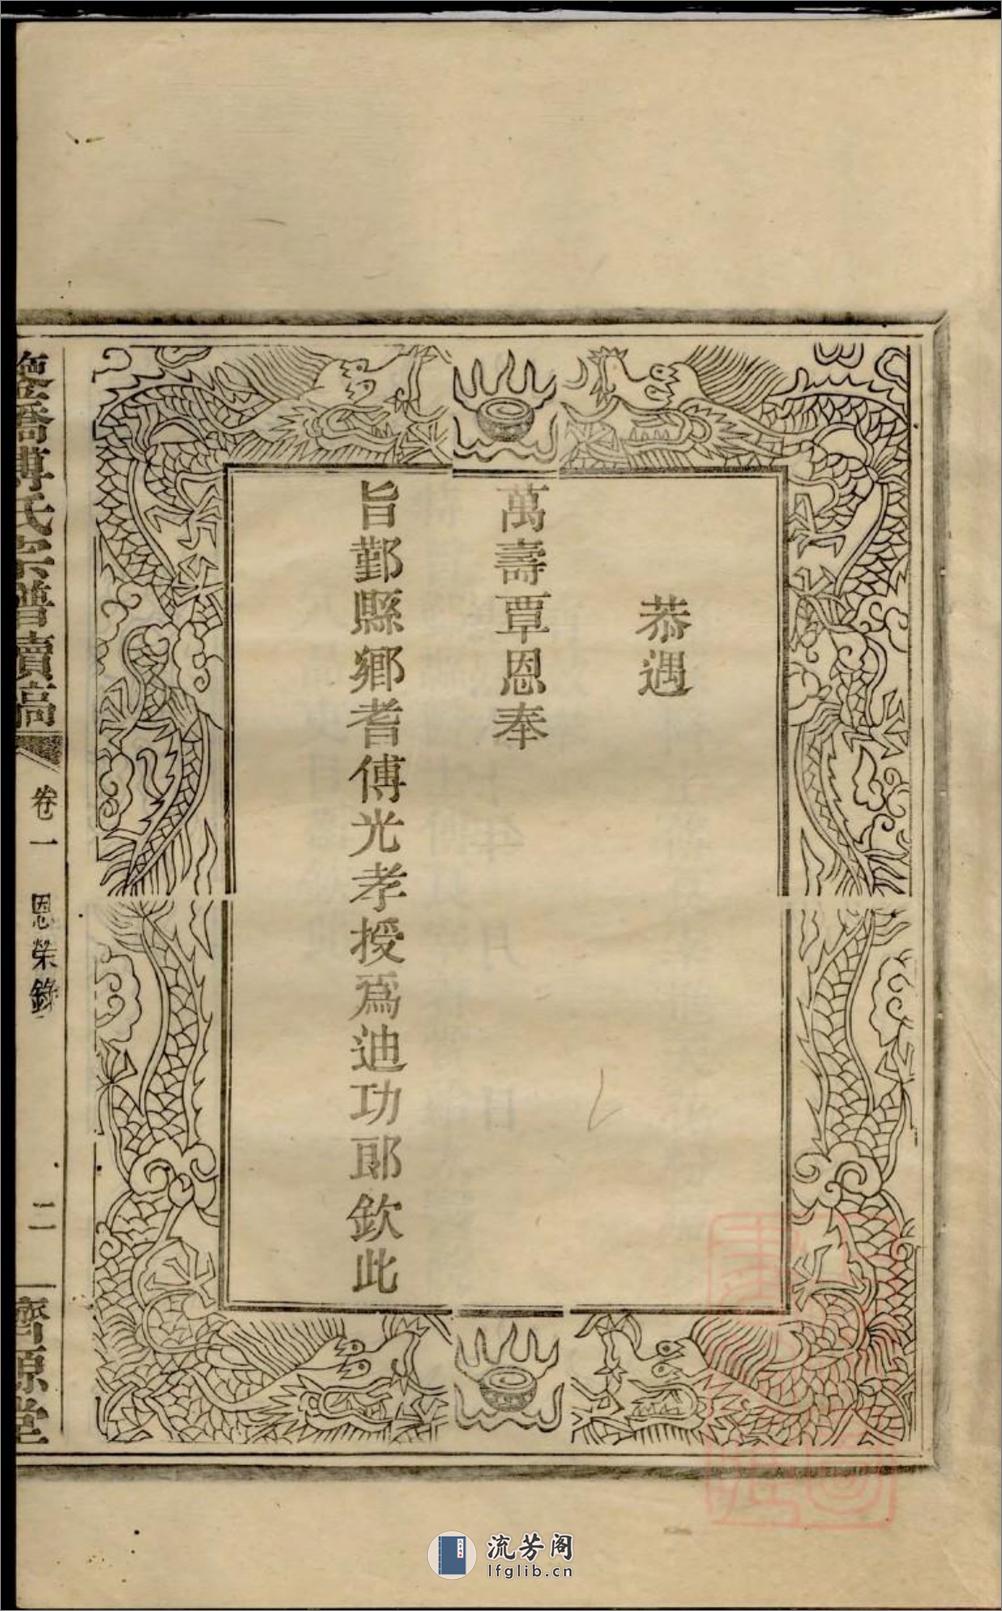 恭遇
萬壽覃恩奉
旨鄞縣鄉耆傅光孝授爲迪功郎欽此
橋傅氏宗譜續稿
卷一
恩榮錄
二
濟源堂
流芳阁
lfglib.cn